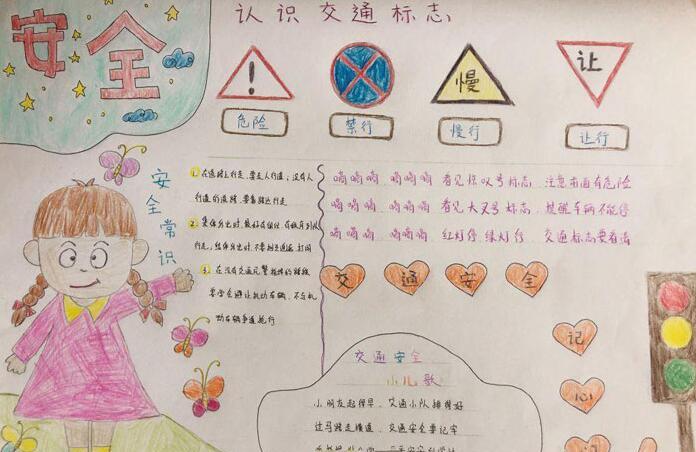 安全
认识交通标志
！
慢
让
危险
禁行
慢行
让行
安全常识
1. 在道路上行走,要走人行道,没有人
行道的道路,要靠路边行走
2. 集体外出时,最好有组织、有秩序列队
行走;结伴外出时,不要相互追逐、打闹
3. 在没有交通民警指挥的路段
要学会避让机动车辆,不与机
动车辆争道抢行
嘀嘀嘀、嘀嘀嘀 看见惊叹号标志、注意前面有危险
嘀嘀嘀、嘀嘀嘀 看见大叉号标志、提醒车辆不能停
嘀嘀嘀、嘀嘀嘀 红灯停、绿灯行、交通标志要看清
交通安全
记
心
交通安全
小儿歌
小朋友起得早、交通小队排得好
过马路走横道、交通安全要记牢